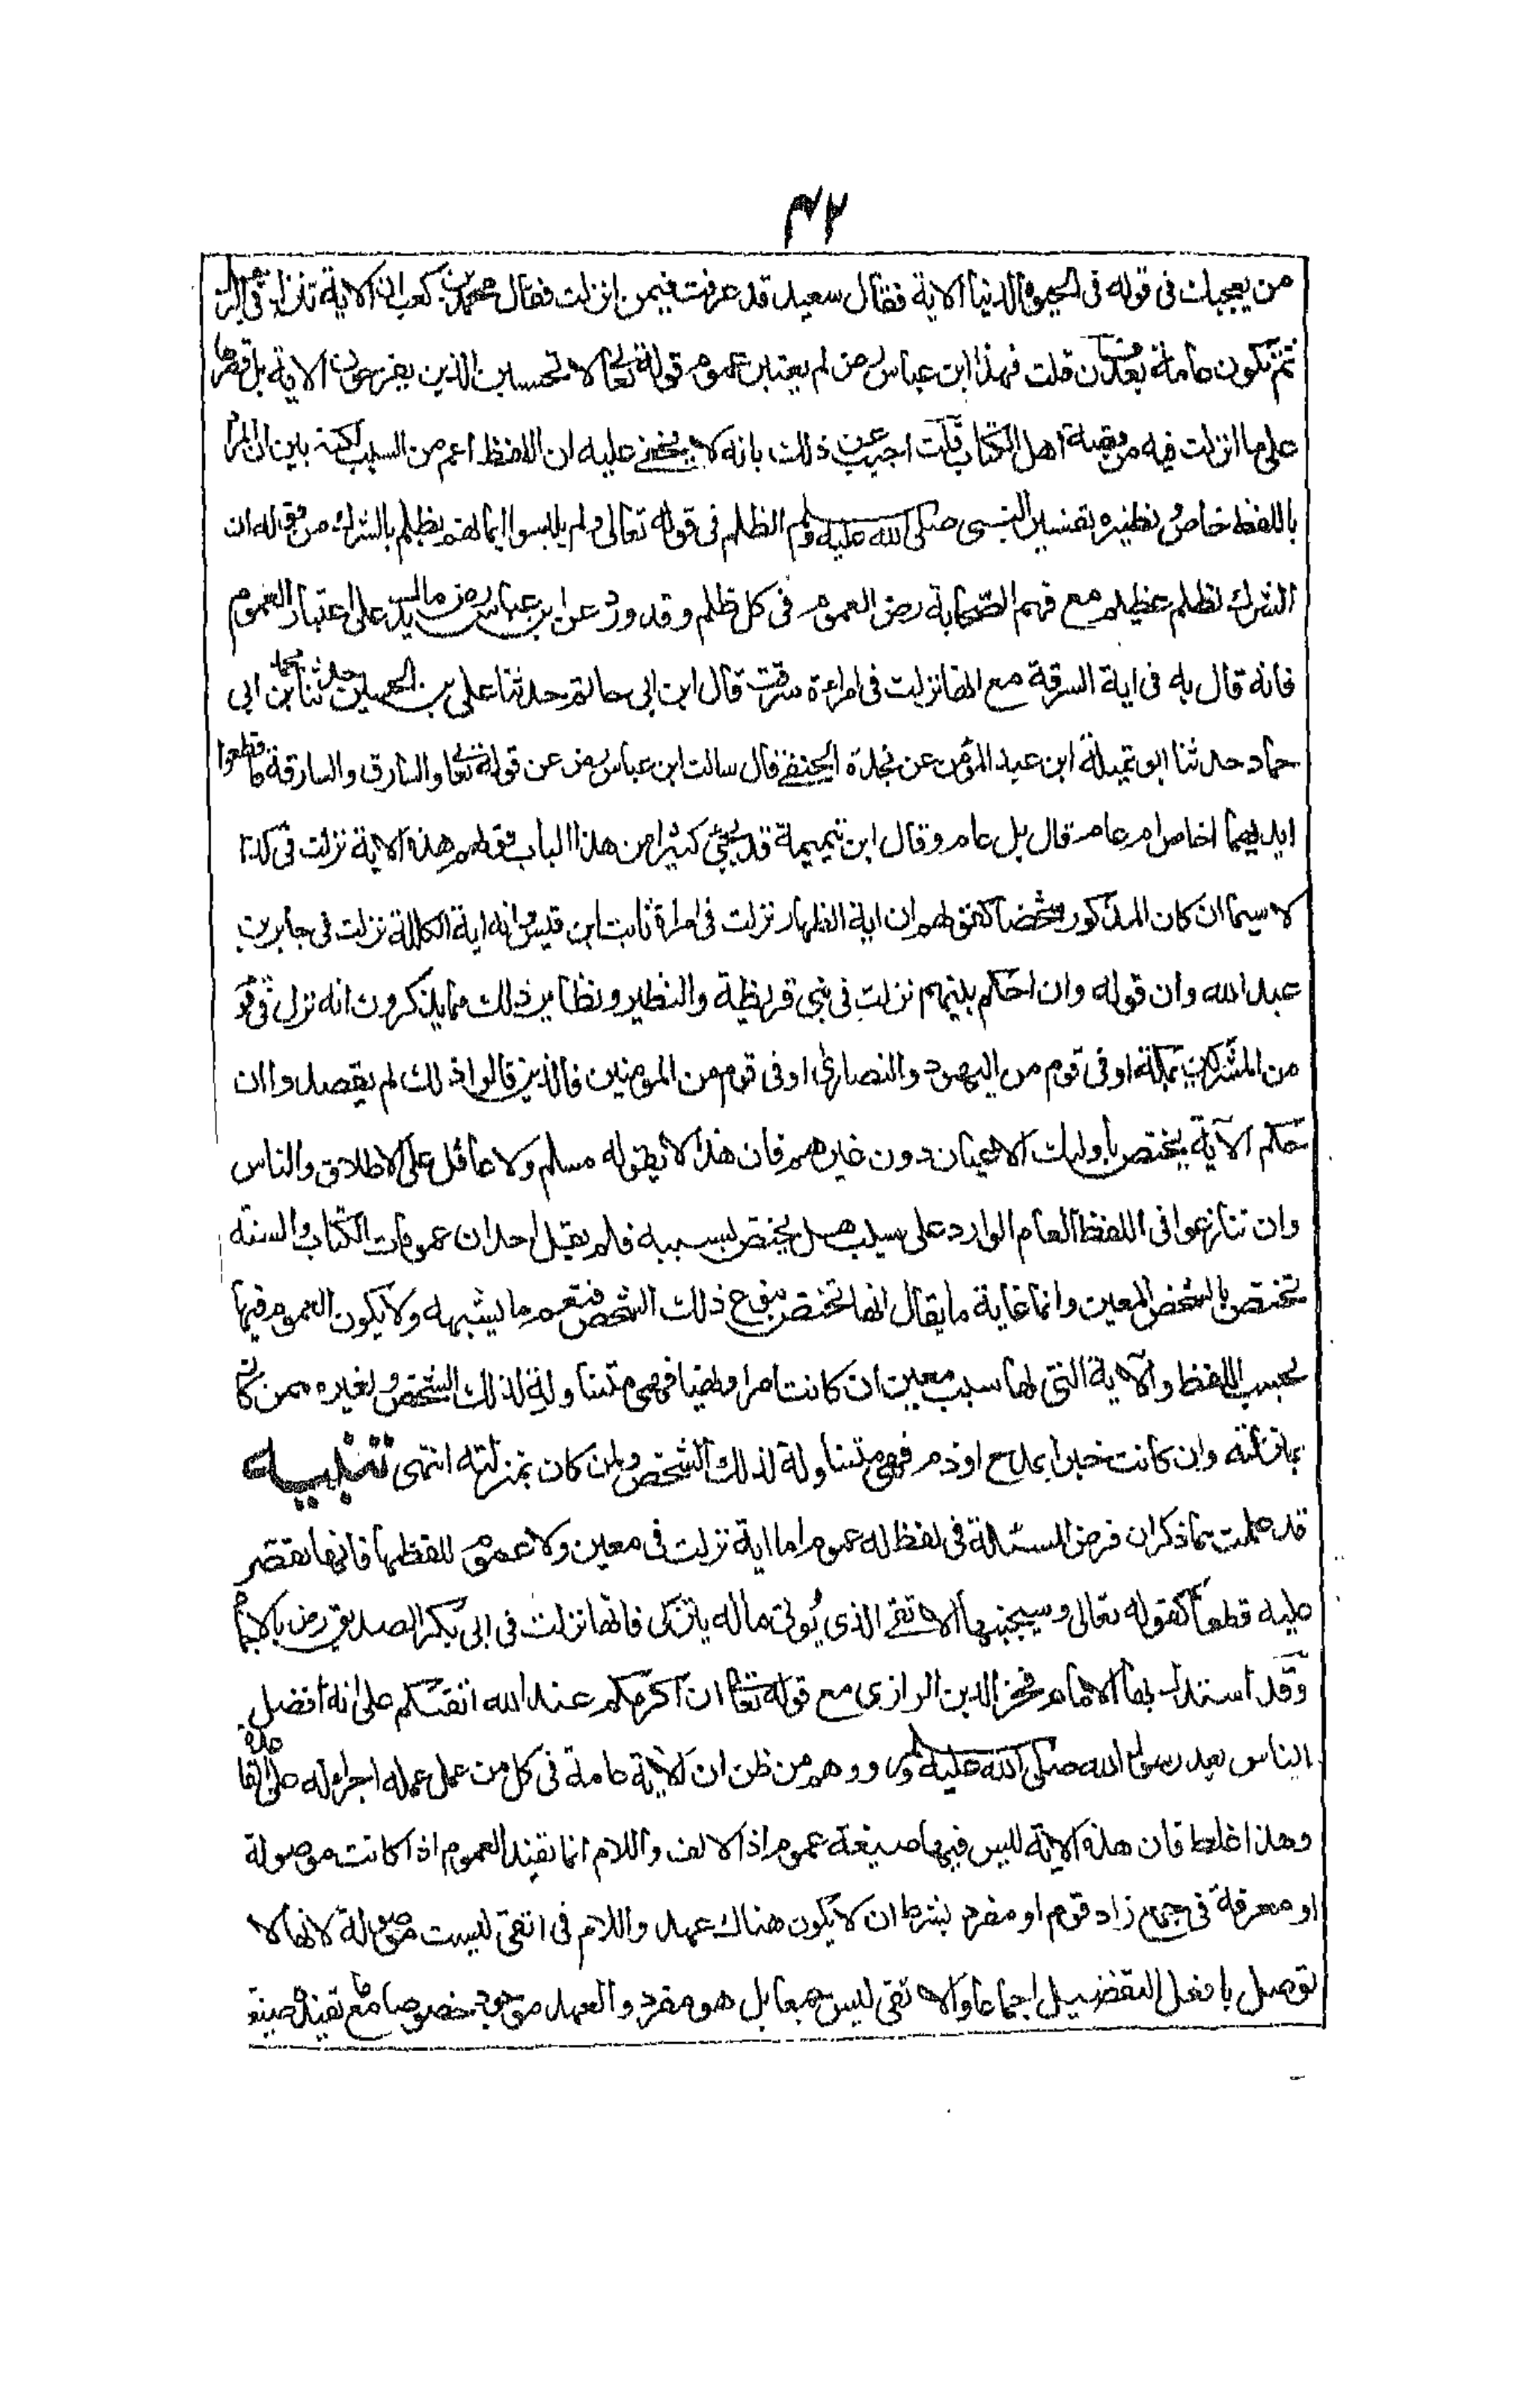 ٤٢
من يعجبك فى قوله فى الحيوة الدنيا الاية فقال سعيد قد عرفت فيمن انزلت فقال محمد بن كعب ان الاية تنزل فى الرجل
ثم تكون عامة بعد فان قلت فهذا ابن عباس رض لم يعتبر عموم قوله تعالى لا تحسبن الذين يفرحون الاية بل قصرها
على ما انزلت فيه من قصة اهل الكتاب قلت اجيب عن ذلك بانه لا يخفى عليه ان اللفظ اعم من السبب لكنه بين ان المراد
باللفظ خاص ونظيره تفسير النبى صلى الله عليه وسلم الظلم فى قوله تعالى ولم يلبسوا ايمانهم بظلم بالشرك من قوله ان
الشرك لظلم عظيم مع فهم الصحابة رض العموم فى كل ظلم وقد ورد عن ابن عباس رض ما يدل على اعتبار العموم
فانه قال به فى اية السرقة مع انها نزلت فى امراءة سرقت قال ابن ابى حاتم حدثنا على بن الحسين حدثنا محمد بن ابى
حماد حدثنا ابو تميلة ابن عبد المؤمن عن نجدة الحنفى قال سالت ابن عباس رض عن قوله تعالى والسارق والسارقة فاقطعوا
ايديهما اخاص ام عام قال بل عام وقال ابن تيمية قد يجئ كثيرا من هذا الباب قولهم هذه الاية نزلت فى كذا
لا سيما ان كان المذكور شخصا كقولهم ان اية الظهار نزلت فى امراة ثابت ابن قيس وان اية الكلالة نزلت فى جابر بن
عبد الله وان قوله وان احكم بينهم نزلت فى بنى قريظة والنظير ونظاير ذلك مما يذكرون انه نزل فى قوم
من المشركين بمكة او فى قوم من اليهود والنصارى او فى قوم من المومنين فالذين قالوا ذلك لم يقصدوا ان
حكم الآية يختص باوليك الاعيان دون غيرهم فان هذا لا يقوله مسلم ولا عاقل على الاطلاق والناس
وان تنازعوا فى اللفظ العام الوارد على سبب هل يختص بسببه فلم يقل احد ان عمومات الكتاب والسنة
تختص بالشخص المعين وانما غاية ما يقال انها تختص بنوع ذلك الشخص فتعم ما يشبهه ولا يكون العموم فيها
بحسب اللفظ والآية التى لها سبب معين ان كانت امرا ونهيا فهى متناولة لذلك الشخص ولغيره ممن كان
بمنزلته وان كانت خبرا بمدح او ذم فهى متناولة لذلك الشخص ولمن كان بمنزلته انتهى تنبيه
قد علمت مما ذكر ان فرض المسئالة فى لفظ له عموم اما اية نزلت فى معين ولا عموم للفظها فانها تقتصر
عليه قطعا كقوله تعالى وسيجنبها الاتقى الذى يؤتى ماله يتزكى فانها نزلت فى ابى بكر الصديق رض بالاجماع
وقد استدل بها الامام فخر الدين الرازى مع قوله تعالى ان اكرمكم عند الله اتقىكم على انه افضل
الناس بعد رسول الله صلى الله عليه وسلم ووهم من ظن ان الاية عامة فى كل من عمل عمله اجراء له على القاعدة
وهذا غلط فان هذه الاية ليس فيها صيغة عموم اذ الالف واللام انما تفيد العموم اذا كانت موصولة
او معرفة فى جمع زاد قوم او مفرد بشرط ان لا يكون هناك عهد واللام فى اتقى ليست موصولة لانها لا
توصل بافعل التفضيل اجماعا والاتقى ليس جمعا بل هو مفرد والعهد موجود خصوصا مع ما تفيد صيغة